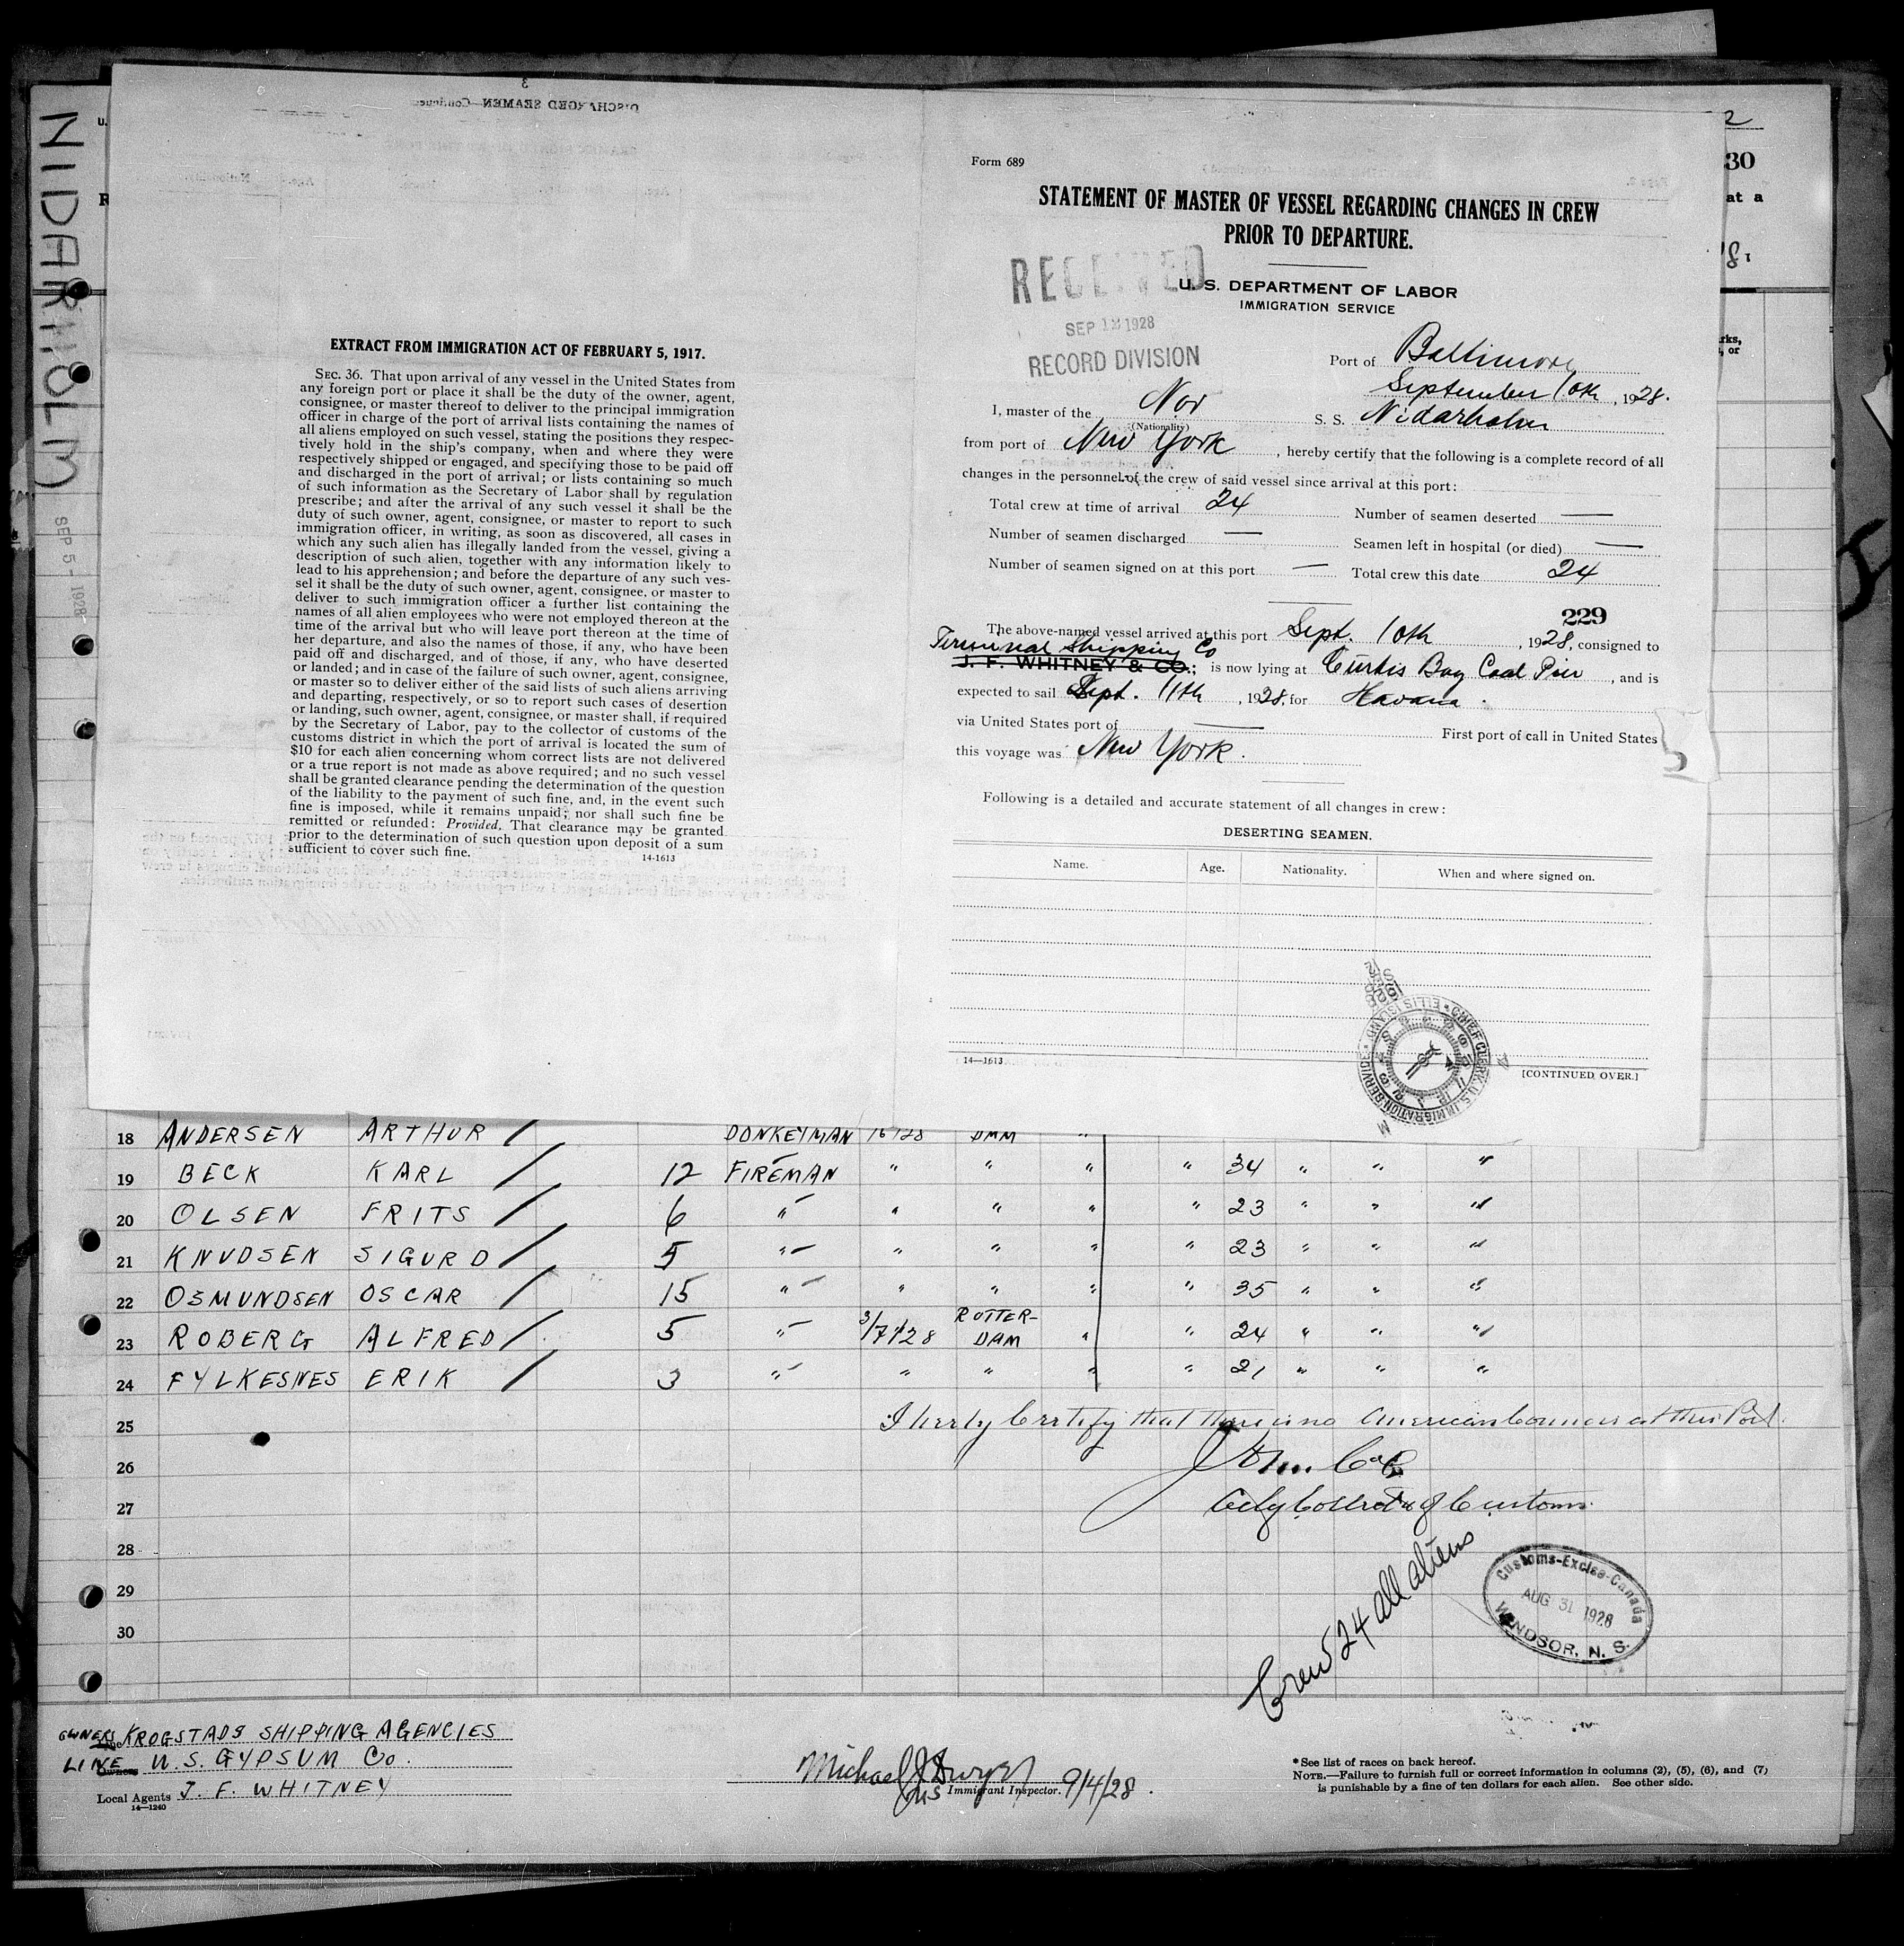 NIDARHOLM
SEP 5 - 1928
DISCHARGED SEAMEN—Continued
3
EXTRACT FROM IMMIGRATION ACT OF FEBRUARY 5, 1917.
SEC. 36. That upon arrival of any vessel in the United States from
any foreign port or place it shall be the duty of the owner, agent,
consignee, or master thereof to deliver to the principal immigration
officer in charge of the port of arrival lists containing the names of
all aliens employed on such vessel, stating the positions they respec-
tively hold in the ship's company, when and where they were
respectively shipped or engaged, and specifying those to be paid off
and discharged in the port of arrival; or lists containing so much
of such information as the Secretary of Labor shall by regulation
prescribe; and after the arrival of any such vessel it shall be the
duty of such owner, agent, consignee, or master to report to such
immigration officer, in writing, as soon as discovered, all cases in
which any such alien has illegally landed from the vessel, giving a
description of such alien, together with any information likely to
lead to his apprehension; and before the departure of any such ves-
sel it shall be the duty of such owner, agent, consignee, or master to
deliver to such immigration officer a further list containing the
names of all alien employees who were not employed thereon at the
time of the arrival but who will leave port thereon at the time of
her departure, and also the names of those, if any, who have been
paid off and discharged, and of those, if any, who have deserted
or landed; and in case of the failure of such owner, agent, consignee,
or master so to deliver either of the said lists of such aliens arriving
and departing, respectively, or so to report such cases of desertion
or landing, such owner, agent, consignee, or master shall, if required
by the Secretary of Labor, pay to the collector of customs of the
customs district in which the port of arrival is located the sum of
$10 for each alien concerning whom correct lists are not delivered
or a true report is not made as above required; and no such vessel
shall be granted clearance pending the determination of the question
of the liability to the payment of such fine, and, in the event such
fine is imposed, while it remains unpaid; nor shall such fine be
remitted or refunded: Provided, That clearance may be granted
prior to the determination of such question upon deposit of a sum
sufficient to cover such fine.
14-1613
Form 689
STATEMENT OF MASTER OF VESSEL REGARDING CHANGES IN CREW
PRIOR TO DEPARTURE.
U. S. DEPARTMENT OF LABOR
IMMIGRATION SERVICE
RECEIVED
SEP 12 1928
RECORD DIVISION
Port of Baltimore
September 10th, 1928.
I, master of the Nor S. S. Nidarholm
(Nationality)
from port of New York, hereby certify that the following is a complete record of all
changes in the personnel of the crew of said vessel since arrival at this port:
Total crew at time of arrival 24 Number of seamen deserted —
Number of seamen discharged — Seamen left in hospital (or died) —
Number of seamen signed on at this port — Total crew this date 24
229
The above-named vessel arrived at this port Sept. 10th, 1928, consigned to
Terminal Shipping Co
J. F. WHITNEY & CO.; is now lying at Curtis Bay Coal Pier, and is
expected to sail Sept. 11th, 1928, for Havana.
via United States port of — First port of call in United States
this voyage was New York.
Following is a detailed and accurate statement of all changes in crew:
DESERTING SEAMEN.
Name. Age. Nationality. When and where signed on.
14—1613
[CONTINUED OVER.]
CHIEF CLERK, U.S. IMMIGRATION SERVICE ELLIS ISLAND
2
30
at a
18 ANDERSEN ARTHUR / DONKEYMAN 16 / 28 DAM "
19 BECK KARL / 12 FIREMAN " " " " 34 " " "
20 OLSEN FRITS / 6 " " " " " 23 " " "
21 KNUDSEN SIGURD / 5 " " " " " 23 " " "
22 OSMUNDSEN OSCAR / 15 " " " " " 35 " " "
23 ROBERG ALFRED / 5 " 3/7 1/28 ROTTER-DAM " " 24 " " "
24 FYLKESNES ERIK / 3 " " " " " 21 " " "
25 I herby Certify that there is no American Counsul at this Port.
26
27
28
29
30
Collector of Customs
Crew 24 all aliens
Customs-Excise-Canada
AUG 31 1928
WINDSOR, N. S.
OWNERS KROGSTADS SHIPPING AGENCIES
LINE U. S. GYPSUM Co.
Owners
Local Agents J. F. WHITNEY
14—1240
Michael J Dwyer
Immigrant Inspector. 9/4/28.
* See list of races on back hereof.
NOTE.—Failure to furnish full or correct information in columns (2), (5), (6), and (7)
is punishable by a fine of ten dollars for each alien. See other side.